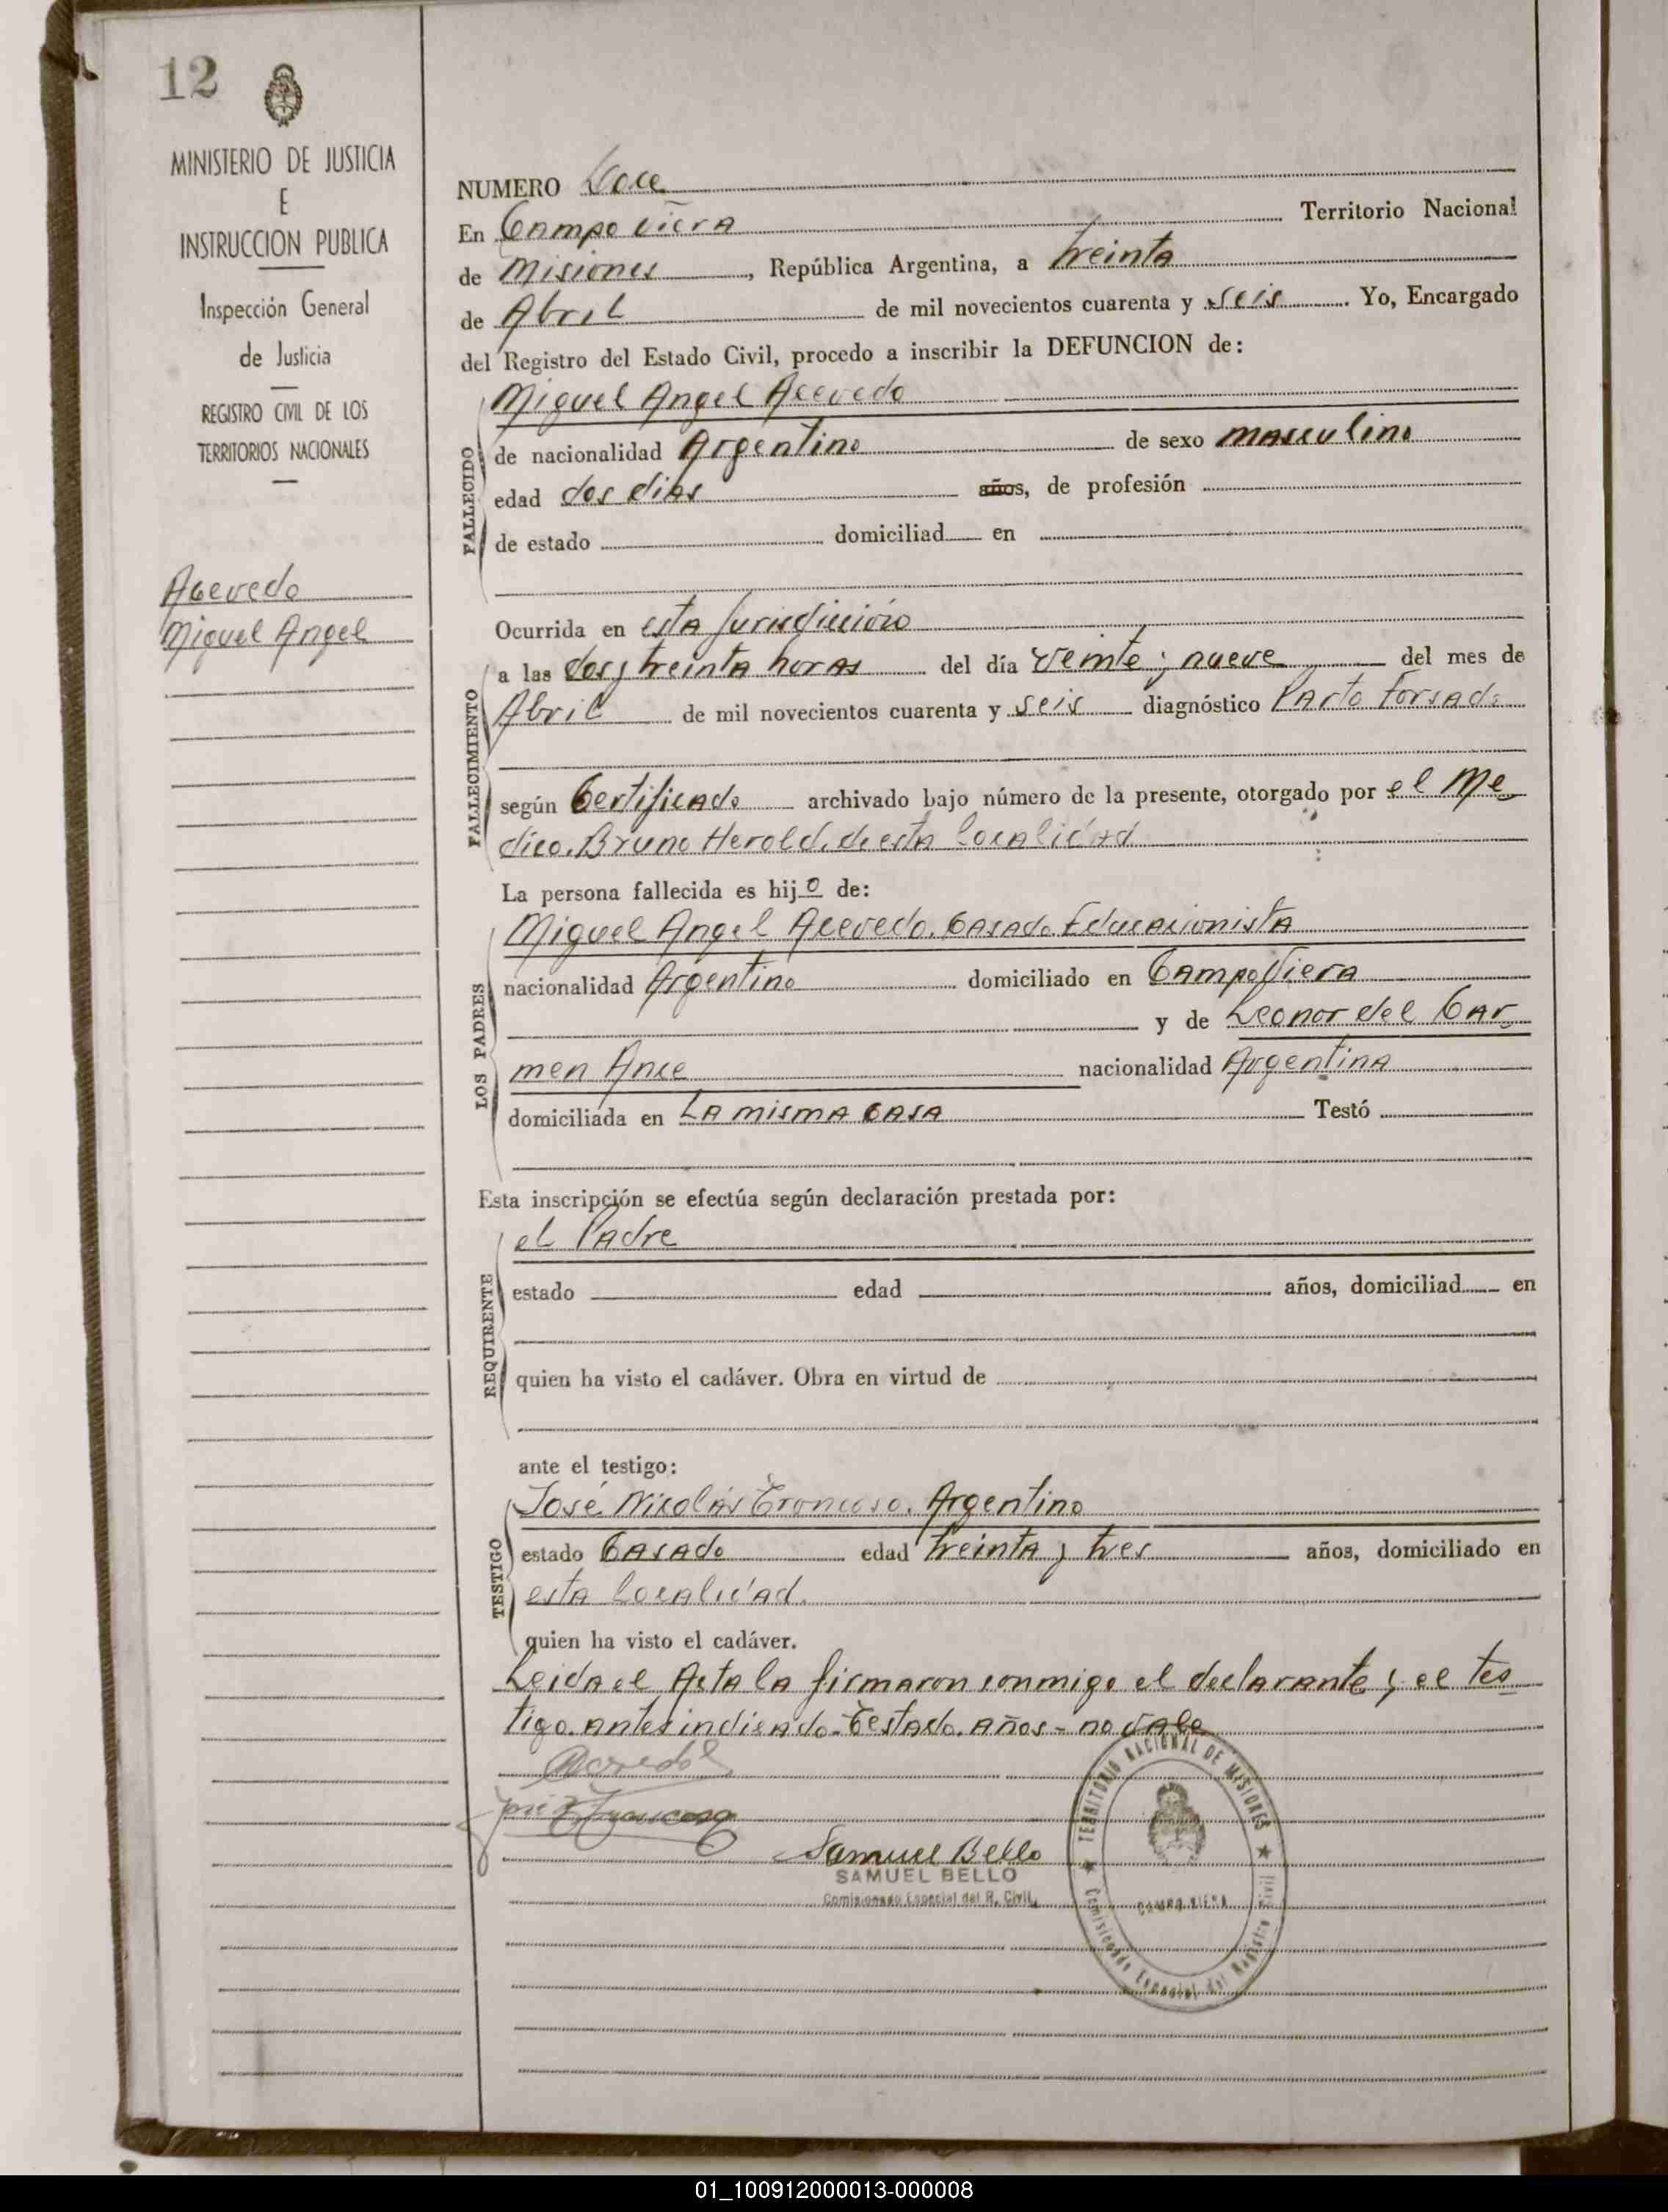 12
MINISTERIO DE JUSTICIA
E
INSTRUCCION PUBLICA
Inspección General
de Justicia
REGISTRO CIVIL DE LOS
TERRITORIOS NACIONALES
Acevedo
Miguel Angel
NUMERO Doce
En Campo Viera Territorio Nacional
de Misiones, República Argentina, a treinta
de Abril de mil novecientos cuarenta y seis. Yo, Encargado
del Registro del Estado Civil, procedo a inscribir la DEFUNCION de:
Miguel Angel Acevedo
FALLECIDO
de nacionalidad Argentino de sexo masculino
edad dos dias años, de profesión
de estado domiciliad en
Ocurrida en esta Jurisdicción
FALLECIMIENTO
a las dos y treinta horas del día veinte y nueve del mes de
Abril de mil novecientos cuarenta y seis diagnóstico Parto Forsado
según Certificado archivado bajo número de la presente, otorgado por el Me-
dico. Bruno Herold. de esta localidad
La persona fallecida es hijo de:
LOS PADRES
Miguel Angel Acevedo. Casado. Educacionista
nacionalidad Argentino domiciliado en Campo Viera
y de Leonor del Car-
men Ance nacionalidad Argentina
domiciliada en La misma casa Testó
Esta inscripción se efectúa según declaración prestada por:
REQUIRENTE
el Padre
estado edad años, domiciliad en
quien ha visto el cadáver. Obra en virtud de
ante el testigo:
TESTIGO
José Nicolás Troncoso. Argentino
estado Casado edad treinta y tres años, domiciliado en
esta localidad.
quien ha visto el cadáver.
Leida el Acta la firmaron conmigo el declarante y el tes-
tigo. antes indicado. Testado. años - no vale
Acevedo
José N Troncoso
Samuel Bello
SAMUEL BELLO
Comisionado Especial del R. Civil
TERRITORIO NACIONAL DE MISIONES
CAMPO VIERA
Comisionado Especial del Registro Civil
01_100912000013-000008